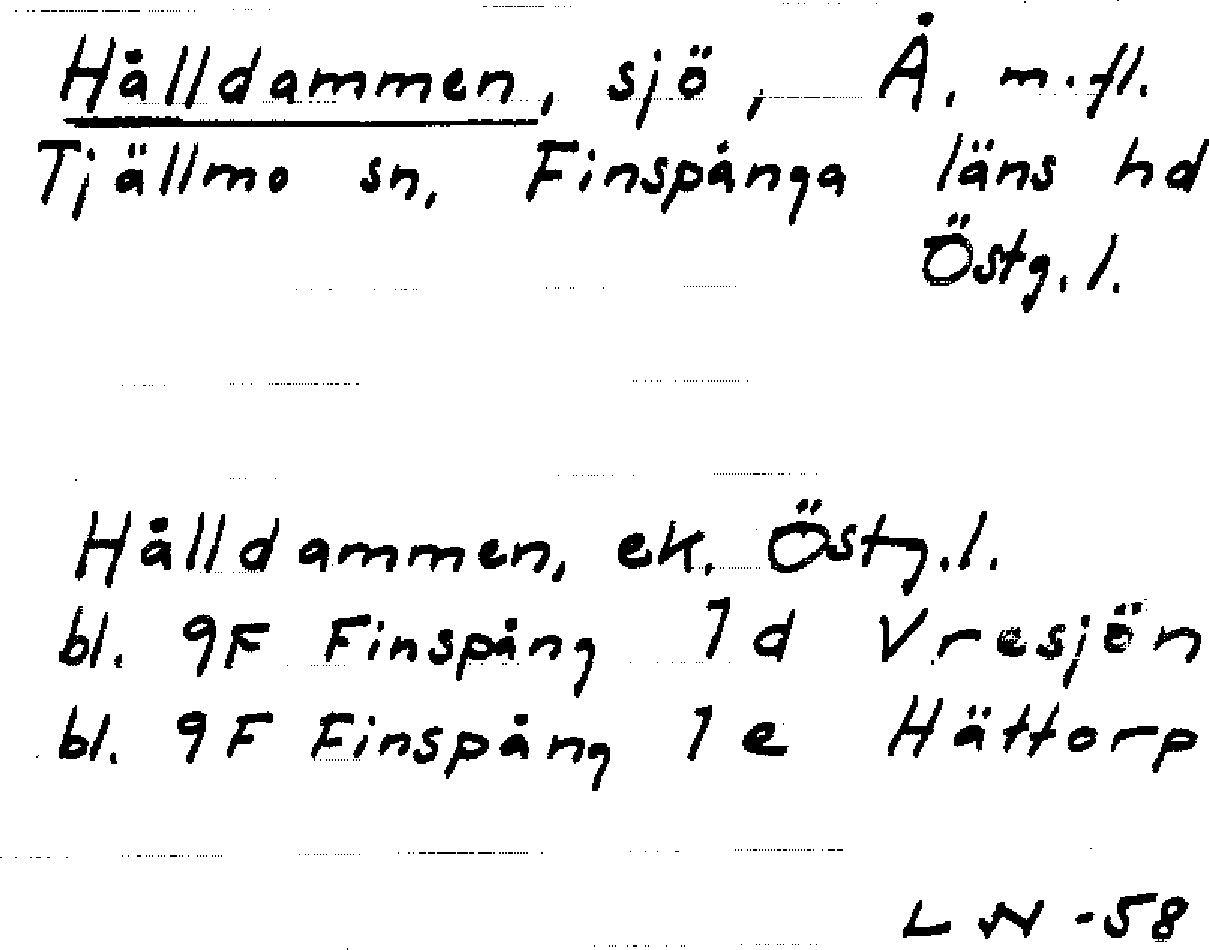 Hålldammen, sjö, Å. m.fl.
Tjällmo sn, Finspånga läns hd
Östg.l.
Hålldammen, ek. Östg.l.
bl. 9F Finspång 1d Vresjön
bl. 9F Finspång 1e Hättorp
LN -58